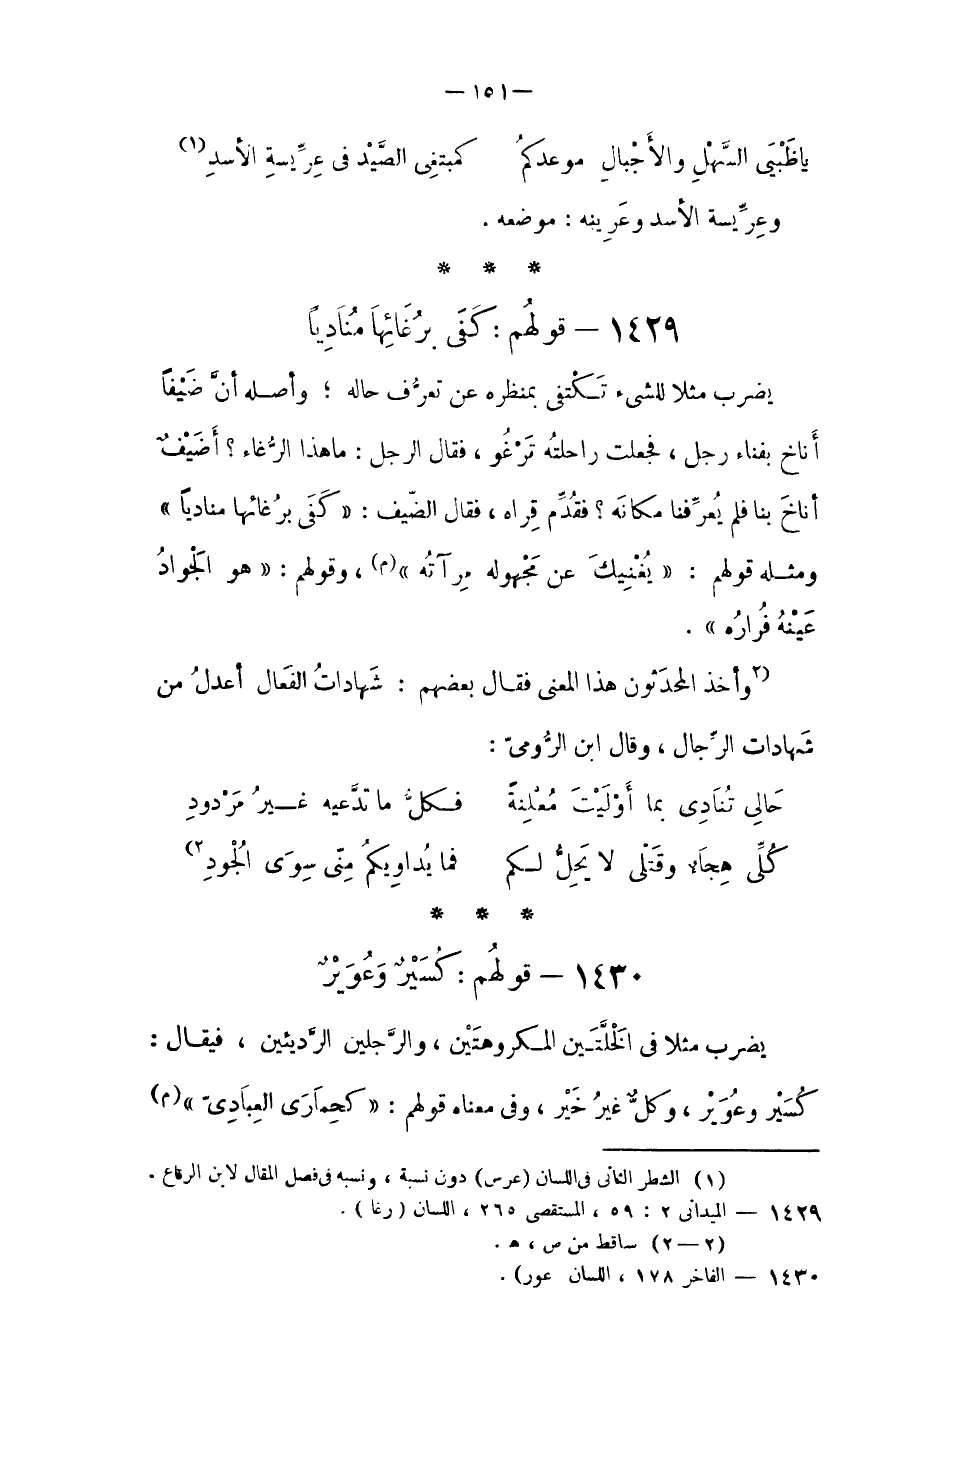 — ١٥١ —
ياظَبْيَى السَّهْلِ والأَجْبالِ موعدكمُ كمبتغِى الصَّيْد فى عِرِّيسةِ الأسدِ(١)
وعِرِّيسة الأسد وعَرِينه : موضعه .
* * *
١٤٢٩ — قولهُم : كَفَى بِرُغَائِهاَ مُنَادِياً
يضرب مثلا للشىء تَكْتفى بمنظره عن تعرُّف حاله ؛ وأصله أنَّ ضَيْفاً
أناخ بفناء رجل ، فجعلت راحلتُه تَرْغُو ، فقال الرجل : ماهذا الرُّغاء ؟ أَضَيْفٌ
أناخَ بنا فلم يُعرِّفنا مكانَه ؟ فقُدِّم قِراه ، فقال الضّيف : « كَفَى برُغائها منادياً »
ومثله قولهم : « يُغْنِيكَ عن مَجْهوله مِرآتُه »(م) ، وقولهم : « هو الجْوادُ
عَيْنُهُ فُرارُه » .
(٢وأخذ المحدَثون هذا المعنى فقال بعضهم : شَهاداتُ الفَعال أعدلُ من
شَهادات الرِّجال ، وقال ابن الرُّومىّ :
حَالِى تُنَادِى بما أَوْلَيْتَ مُعْلِنةً فكلُّ ما تدَّعيه غيرُ مَرْدودِ
كُلِّى هِجاَء وقَتْلى لا يَحِلُّ لكم فما يُداوِيكمُ مِنّى سِوَى الجُودِ٢)
* * *
١٤٣٠ — قولهُم : كُسَيْرٌ وَعُوَيْرٌ
يضرب مثلا فى الخَلَّتَين المكروهتَيْن ، والرَّجلين الرَّديئين ، فيقال :
كُسَيْر وعُوَيْر ، وكلٌّ غيرُ خَيْر ، وفى معناه قولهم : « كحِماَرَى العِباَدِىّ »(م)
(١) الشطر الثانى فى اللسان (عرس) دون نسبة ، ونسبه فى فصل المقال لابن الرقاع .
١٤٢٩ — الميدانى ٢ : ٥٩ ، المستقصى ٢٦٥ ، اللسان ( رغا ) .
(٢—٢) ساقط من ص ، ه .
١٤٣٠ — الفاخر ١٧٨ ، اللسان عور) .